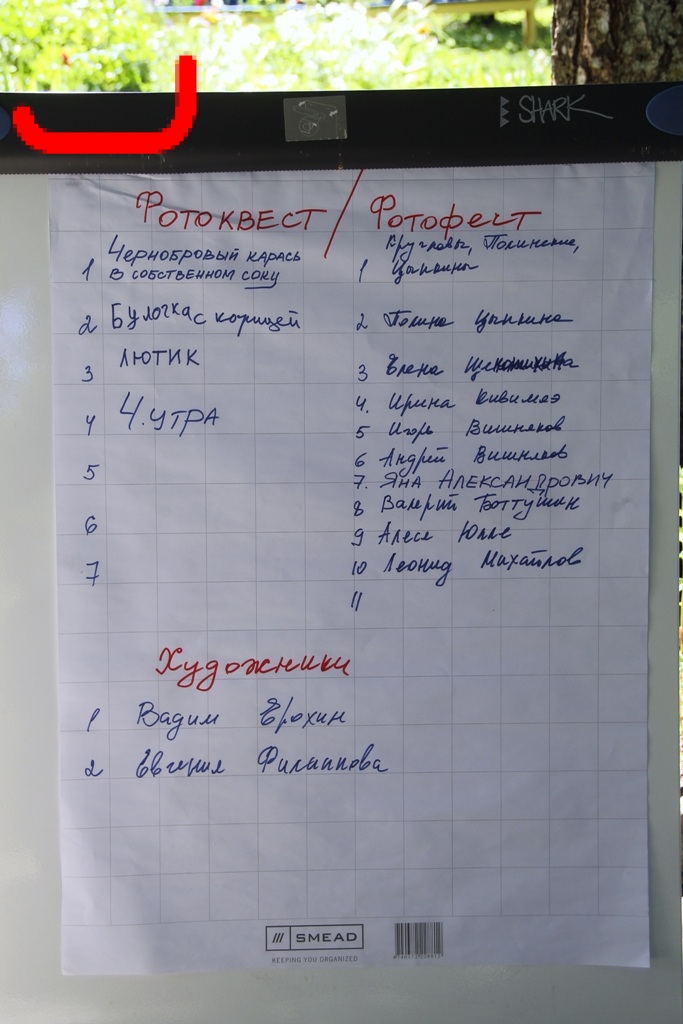 SHARK
Фотоквест / Фотофест
1 Чернобровый карась
в собственном соку
2 Булочка с корицей
3 ЛЮТИК
4 4.УТРА
5
6
7
Кругловы, Полинские,
1 Цыпкины
2 Полина Цыпкина
3 Елена
4. Ирина Кивимаэ
5 Игорь Вишняков
6 Андрей Вишняков
7. ЯНА АЛЕКСАНДРОВИЧ
8 Валерий
9 Алеся Юлле
10 Леонид Михайлов
11
Художники
1 Вадим Ерохин
2 Евгения Филиппова
SMEAD
KEEPING YOU ORGANIZED